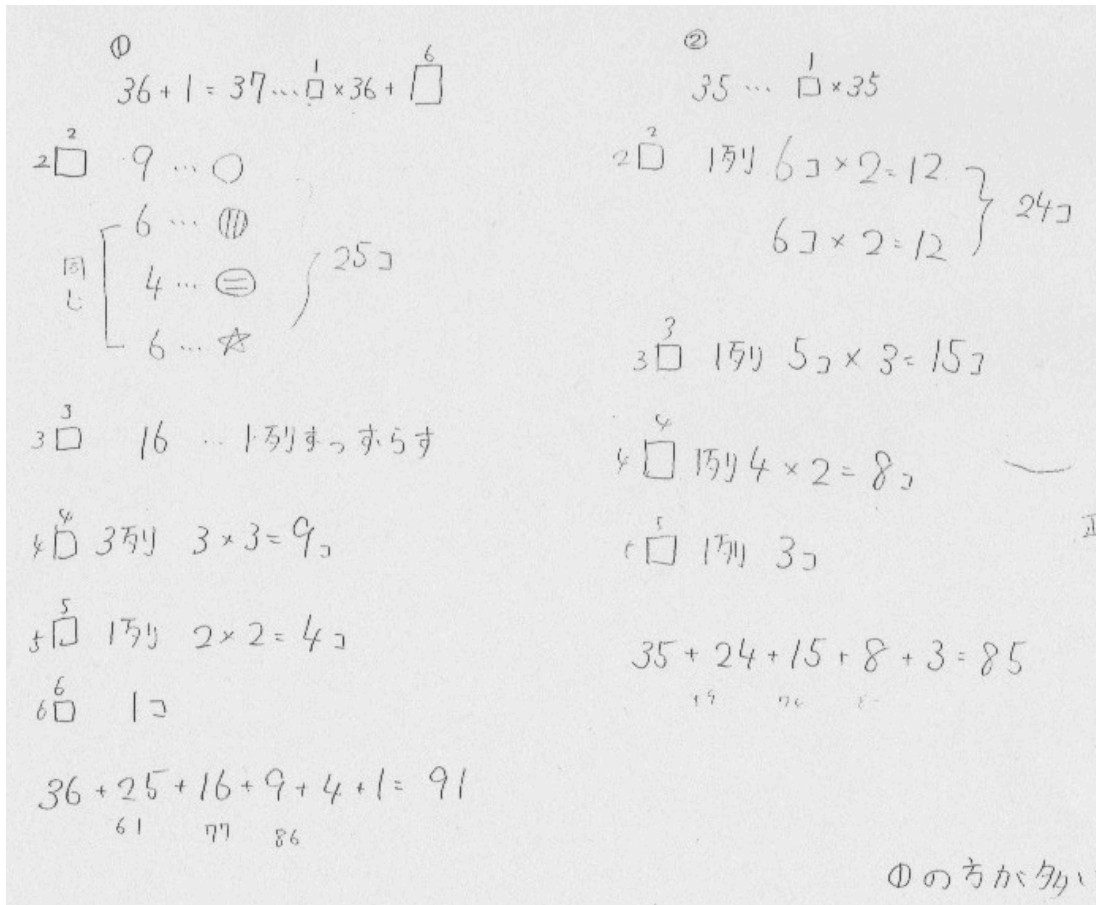 ①
36+1=37…□×36+□
1
6
2□
2
9…○
6…
4…
6…☆
同じ
25コ
3□
3
16…1列りずつずらす
4□
4
3列り 3×3=9コ
5□
5
1列り 2×2=4コ
6□
6
1コ
36+25+16+9+4+1=91
61 77 86
②
35…□×35
1
2□
2
1列り 6コ×2=12
6コ×2=12
24コ
3□
3
1列り 5コ×3=15コ
4□
4
1列り 4×2=8コ
□
1列り 3コ
35+24+15+8+3=85
①の方が多い